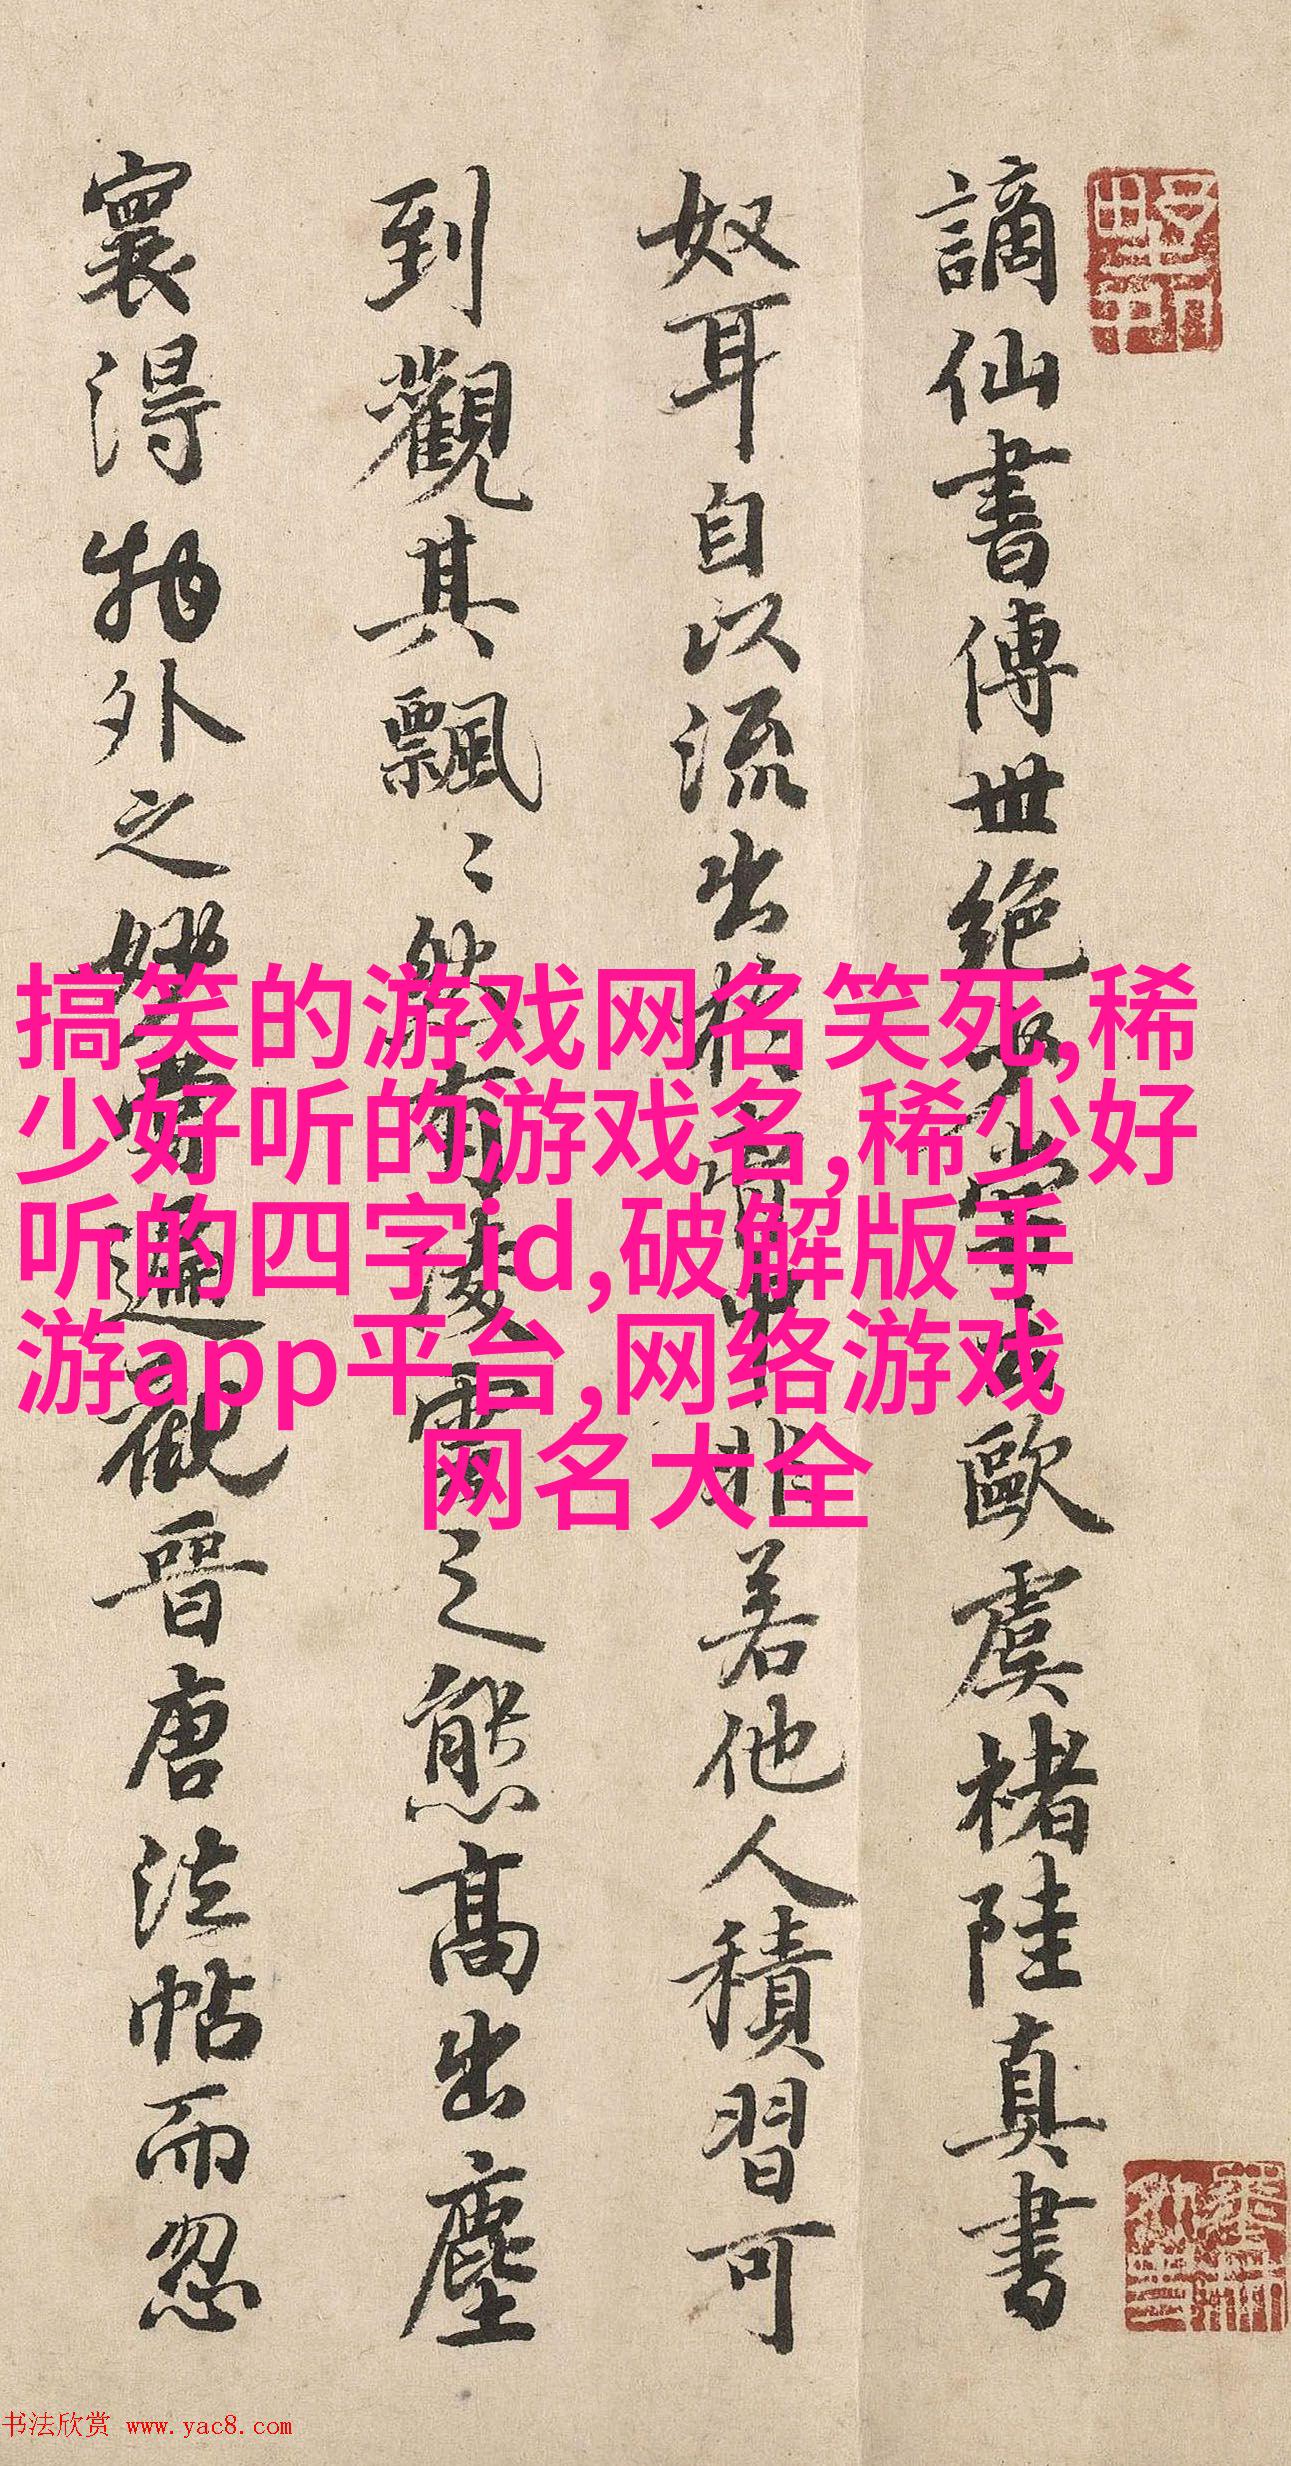 謫仙書傳世絕少嘗云歐虞褚陸真書
奴耳自以流出於胸中非若他人積習可
到觀其飄〻然有凌雲之態高出塵
寰得物外之妙嘗遍觀晉唐法帖而忽
搞笑的游戏网名笑死,稀
少好听的游戏名,稀少好
听的四字id,破解版手
游app平台,网络游戏
网名大全
书法欣赏 www.yac8.com